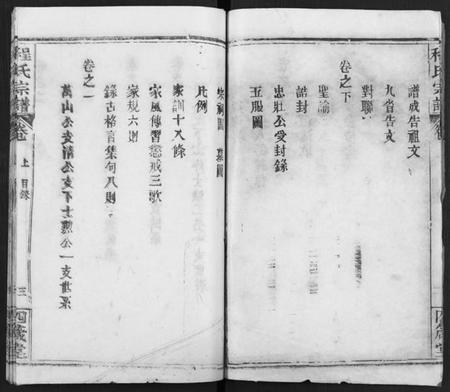 程氏宗譜
四箴堂
譜成告祖文
九省告文
對聯
卷之下
聖諭
誥封
忠壯公受封錄
五服圖
凡例
家訓十八條
家風傳習懲戒三歌
家規六則
錄古格言集句八則
卷之一
萬山公支靜公支下士聰公一支世系
程氏宗譜 卷 上 目錄 三 四箴堂